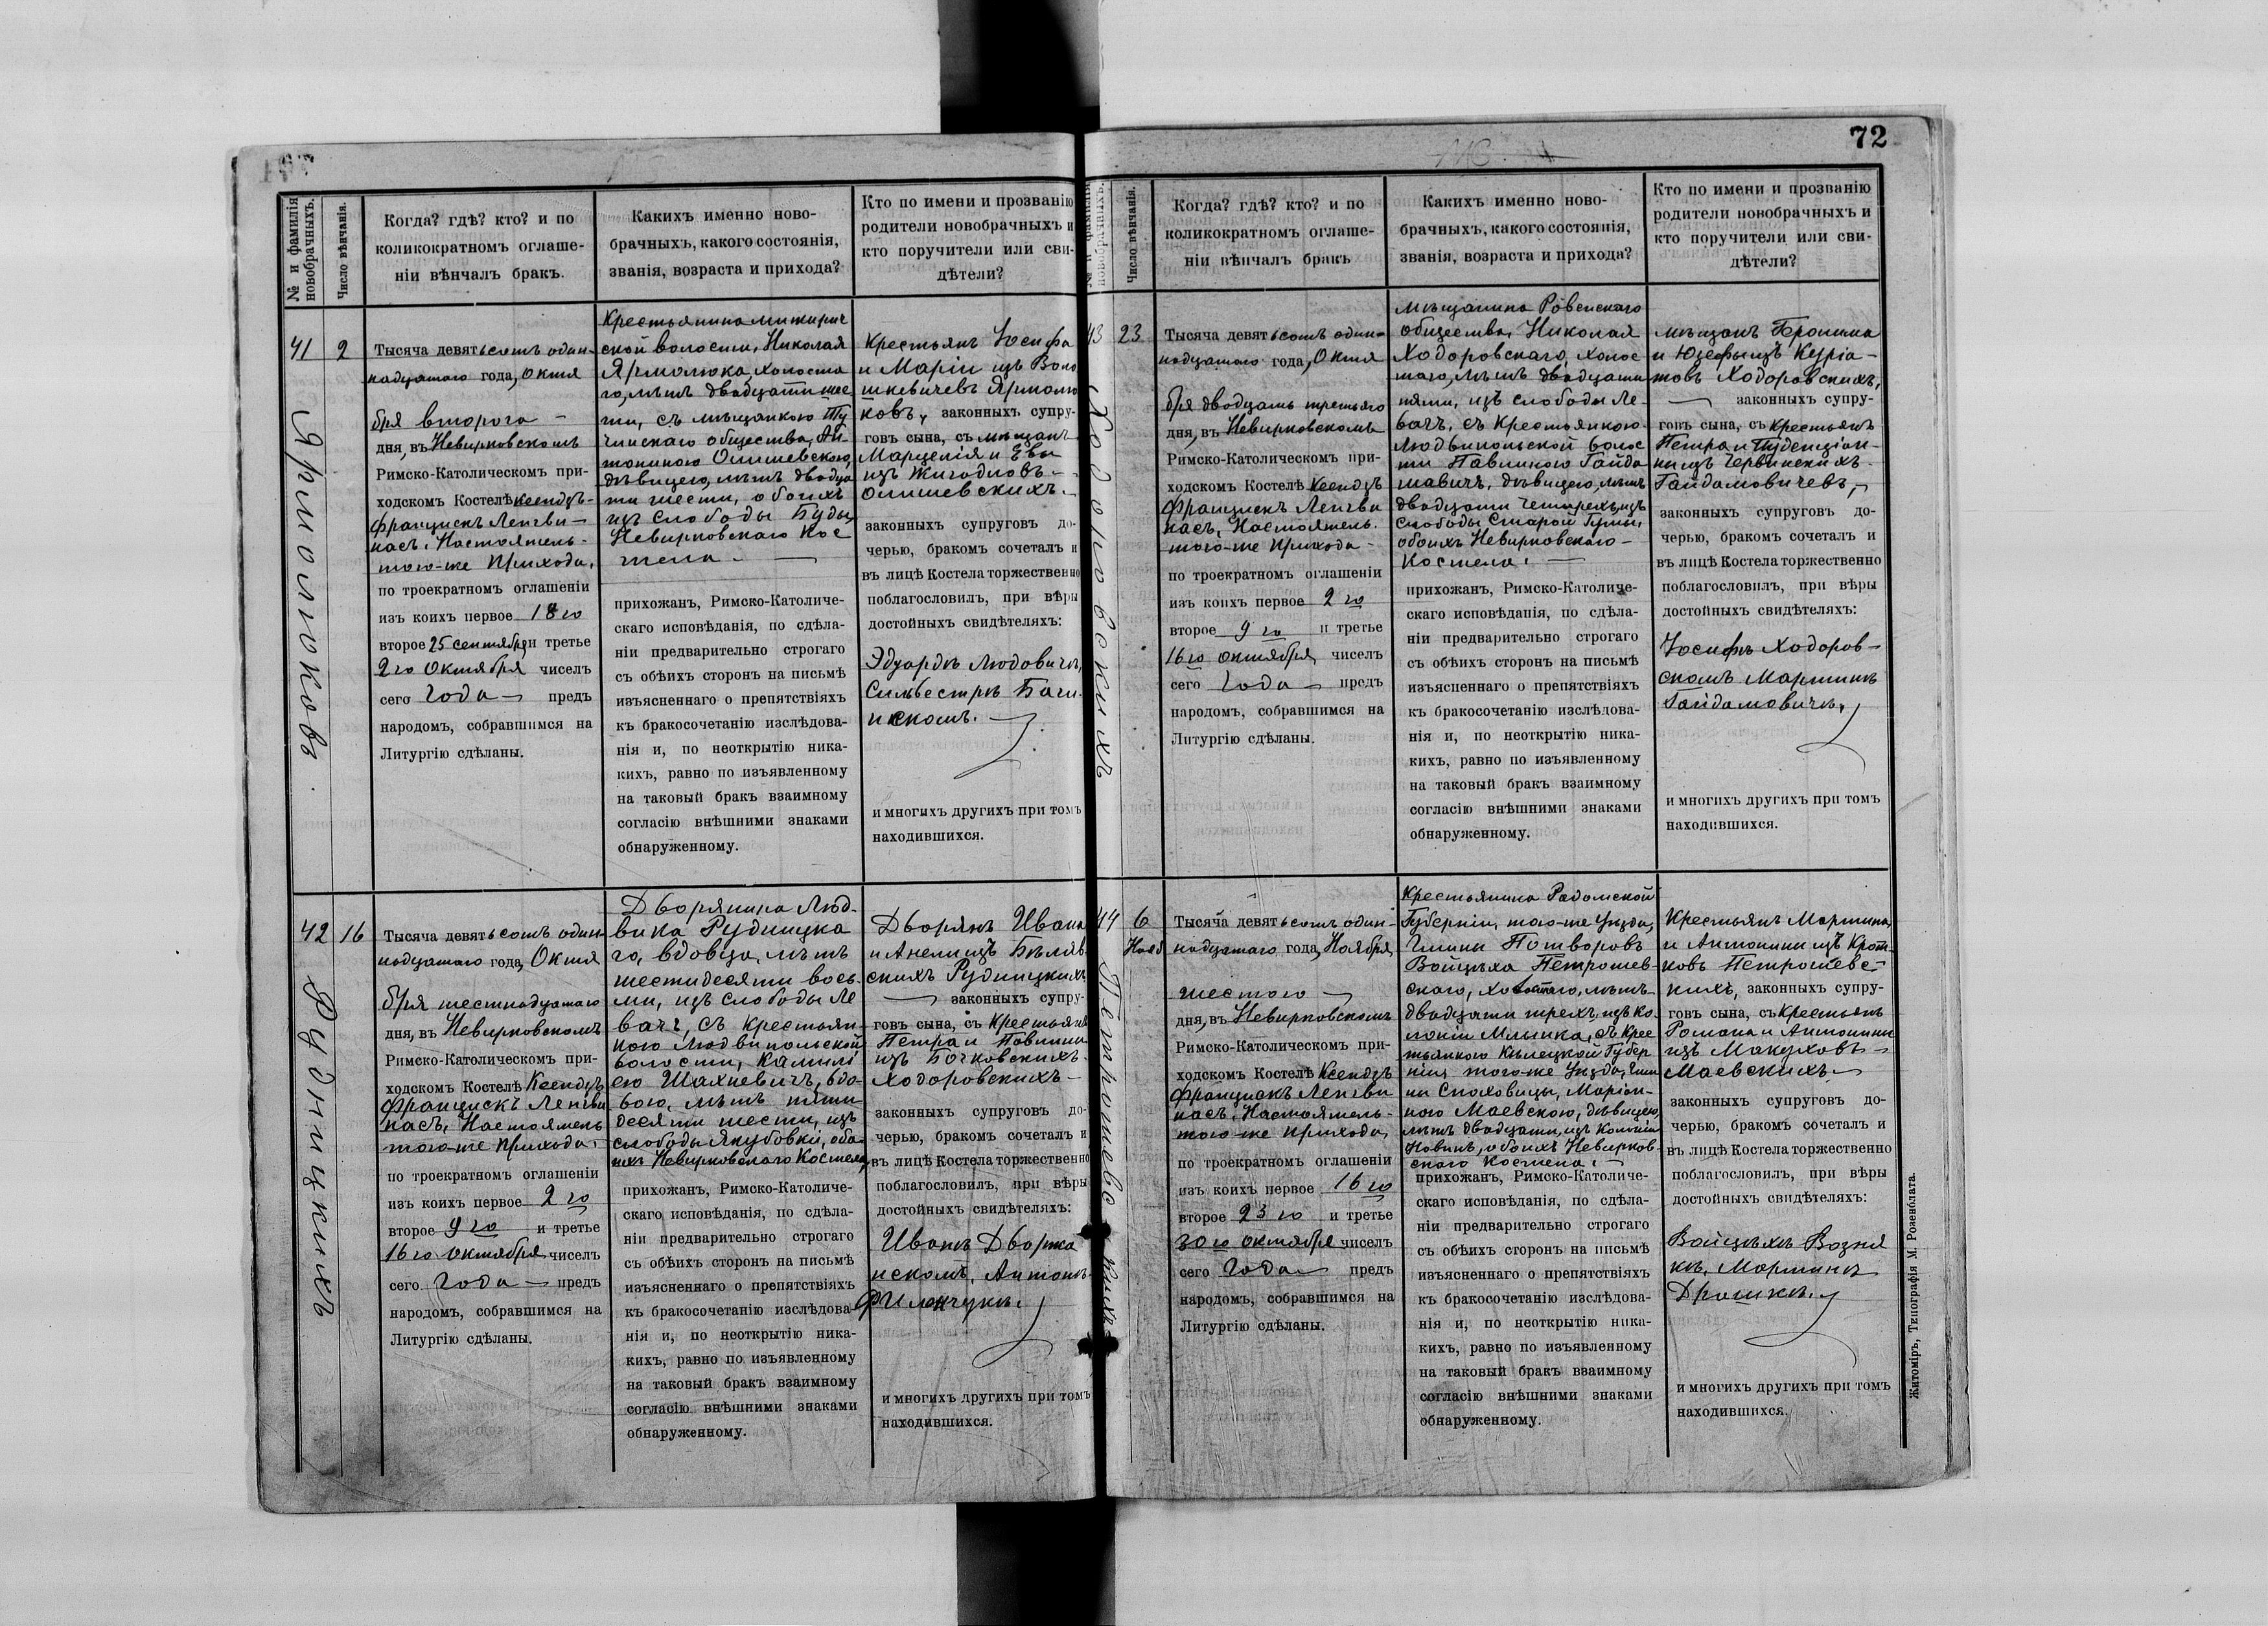 72
№ и фамилія
новобрачныхъ.
Число вѣнчанія.
Когда? гдѣ? кто? и по
коликократномъ оглаше-
ніи вѣнчалъ бракъ.
Какихъ именно ново-
брачныхъ, какого состоянія,
званія, возраста и прихода?
Кто по имени и прозванію
родители новобрачныхъ и
кто поручители или сви-
дѣтели?
41
2
Ярмолюковъ.
Тысяча девятьсотъ один-
надцатаго года, Октя
бря втораго
дня, въ Невирковскомъ
Римско-Католическомъ при-
ходскомъ Костелѣ Ксендзъ
Францискъ Ленгви-
насъ, Настоятель
того-же Прихода,
по троекратномъ оглашеніи
изъ коихъ первое 18 го
второе 25 сентября и третье
2 го Октября чиселъ
сего Года предъ
народомъ, собравшимся на
Литургію сдѣланы.
Крестьянина межирич
ской волости, Николая
Ярмолюка, холоста
го, лѣтъ двадцати шес
ти, съ мѣщанкою Ту
чинскаго общества, Ан-
тониною Олишевскою,
дѣвицею, лѣтъ двадца
ти шести, обоихъ
изъ слободы Буды,
Невирковскаго Кос
тела.
прихожанъ, Римско-Католиче-
скаго исповѣданія, по сдѣла-
ніи предварительно строгаго
съ обѣихъ сторонъ на письмѣ
изъясненнаго о препятствіяхъ
къ бракосочетанію изслѣдова-
нія и, по неоткрытію ника-
кихъ, равно по изъявленному
на таковый бракъ взаимному
согласію внѣшними знаками
обнаруженному.
Крестьянъ Іосифа
и Маріи изъ Воло
шкевичевъ Ярмолю
ковъ, законныхъ супру-
говъ сына, съ мѣщанъ
Марцелія и Евы
изъ Жигадловъ
Олишевскихъ.
законныхъ супруговъ до-
черью, бракомъ сочеталъ и
въ лицѣ Костела торжественно
поблагословилъ, при вѣры
достойныхъ свидѣтеляхъ:
Эдуардъ Людовичъ,
Сильвестръ Баги-
нскомъ.
и многихъ другихъ при томъ
находившихся.
42
16
Рудницкихъ
Тысяча девятьсотъ один-
надцатаго года, Октя
бря шестнадцатаго
дня, въ Невирковскомъ
Римско-Католическомъ при-
ходскомъ Костелѣ Ксендзъ
Францискъ Ленгви
насъ, Настоятель
того-же Прихода,
по троекратномъ оглашеніи
изъ коихъ первое 2 го
второе 9 го и третье
16 го октября чиселъ
сего Года предъ
народомъ, собравшимся на
Литургію сдѣланы.
Дворянина Люд-
вика Рудницка
го, вдовца, лѣтъ
шестидесяти вось-
ми, изъ слободы Ле
вачъ, съ крестьян-
кою Людвипольской
волости, Камилі
ею Шахневичъ, вдо-
вою, лѣтъ пяти
десяти шести, изъ
слободы Якубовки, обо-
ихъ Невирковскаго Костела,
прихожанъ, Римско-Католиче-
скаго исповѣданія, по сдѣла-
ніи предварительно строгаго
съ обѣихъ сторонъ на письмѣ
изъясненнаго о препятствіяхъ
къ бракосочетанію изслѣдова-
нія и, по неоткрытію ника-
кихъ, равно по изъявленному
на таковый бракъ взаимному
согласію внѣшними знаками
обнаруженному.
Дворянъ Ивана
и Анели изъ Бѣляв
скихъ Рудницкихъ
законныхъ супру-
говъ сына, съ крестьянъ
Петра и Павлины
изъ Бочковскихъ
Ходоровскихъ
законныхъ супруговъ до-
черью, бракомъ сочеталъ и
въ лицѣ Костела торжественно
поблагословилъ, при вѣры
достойныхъ свидѣтеляхъ:
Иванъ Дворжа
нскомъ, Антонъ
Филенчукъ,
и многихъ другихъ при томъ
находившихся.
№ и фамилія
новобрачныхъ.
Число вѣнчанія.
Когда? гдѣ? кто? и по
коликократномъ оглаше-
ніи вѣнчалъ бракъ
Какихъ именно ново-
брачныхъ, какого состоянія,
званія, возраста и прихода?
Кто по имени и прозванію
родители новобрачныхъ и
кто поручители или сви-
дѣтели?
43
23
Ходоровскихъ
Тысяча девятьсотъ один-
надцатаго года, Октя
бря двадцать третьяго
дня, въ Невирковскомъ
Римско-Католическомъ при-
ходскомъ Костелѣ Ксендзъ
Францискъ Ленгви
насъ, Настоятель
того-же Прихода
по троекратномъ оглашеніи
изъ коихъ первое 2 го
второе 9 го и третье
16 го октября чиселъ
сего Года предъ
народомъ, собравшимся на
Литургію сдѣланы.
Мѣщанина Ровенскаго
общества, Николая
Ходоровскаго, холос
таго, лѣтъ двадцати
пяти, изъ слободы Ле-
вачъ, съ Крестьянкою
Людвипольской волос
ти Павлиною Гайда
мавичъ, дѣвицею, лѣтъ
двадцати четырехъ, изъ
слободы Старой Гуты,
обоихъ Невирковскаго
Костела,
прихожанъ, Римско-Католиче-
скаго исповѣданія, по сдѣла-
ніи предварительно строгаго
съ обѣихъ сторонъ на письмѣ
изъясненнаго о препятствіяхъ
къ бракосочетанію изслѣдова-
нія и, по неоткрытію ника-
кихъ, равно по изъявленному
на таковый бракъ взаимному
согласію внѣшними знаками
обнаруженному.
мѣщанъ Бронина
и Юзефы изъ Куріа-
товъ Ходоровскихъ,
законныхъ супру-
говъ сына, съ Крестьянъ
Петра и Пуденціан-
ны изъ Червинскихъ
Гайдамовичевъ,
законныхъ супруговъ до-
черью, бракомъ сочеталъ и
въ лицѣ Костела торжественно
поблагословилъ, при вѣры
достойныхъ свидѣтеляхъ:
Іосифъ Ходоров-
скомъ Мартинъ
Гайдамовичъ,
и многихъ другихъ при томъ
находившихся.
44
6
Нояб
Петрошевскихъ
Тысяча девятьсотъ один-
надцатаго года, Ноября,
шестого
дня, въ Невирковскомъ
Римско-Католическомъ при-
ходскомъ Костелѣ Ксендзъ
Францискъ Ленгви
насъ, Настоятель
того-же прихода,
по троекратномъ оглашеніи
изъ коихъ первое 16 го
второе 23 го и третье
30 го октября чиселъ
сего Года предъ
народомъ, собравшимся на
Литургію сдѣланы.
Крестьянина Радомской
Губерніи, того-же Уѣзда,
Гмины Потворовъ
Войцѣха Петрошев-
скаго, холостаго, лѣтъ
двадцати трехъ, изъ Ко
лоніи Млынка, съ Крес
тьянкою Кѣлецкой Губер
ніи, того-же Уѣзда, Гми
ны Снаховицы, Маріан-
ною Маевскою, дѣвицею,
лѣтъ двадцати, изъ Колоніи
Новинъ, обоихъ Невирков-
скаго Костела,
прихожанъ, Римско-Католиче-
скаго исповѣданія, по сдѣла-
ніи предварительно строгаго
съ обѣихъ сторонъ на письмѣ
изъясненнаго о препятствіяхъ
къ бракосочетанію изслѣдова-
нія и, по неоткрытію ника-
кихъ, равно по изъявленному
на таковый бракъ взаимному
согласію внѣшними знаками
обнаруженному.
Крестьянъ Мартина,
и Антонины изъ Крот-
ковъ Петрошевс-
кихъ, законныхъ супру-
говъ сына, съ Крестьянъ
Романа и Антонины
изъ Макуховъ
Маевскихъ
законныхъ супруговъ до-
черью, бракомъ сочеталъ и
въ лицѣ Костела торжественно
поблагословилъ, при вѣры
достойныхъ свидѣтеляхъ:
Войцѣхъ Возня
къ, Мартинъ
Дрошкъ,
и многихъ другихъ при томъ
находившихся.
Житоміръ, Типографія М. Розенблата.